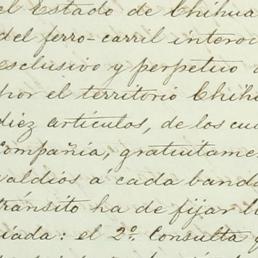 el Estado de Chihua
del ferro-carril interoc
esclusivo y perpetuo
por el territorio Chihu
diez artículos, de los cua
Compañía, gratuitame
valdios á cada banda
tránsito ha de fijar l
iada: el 2º. Consulta y